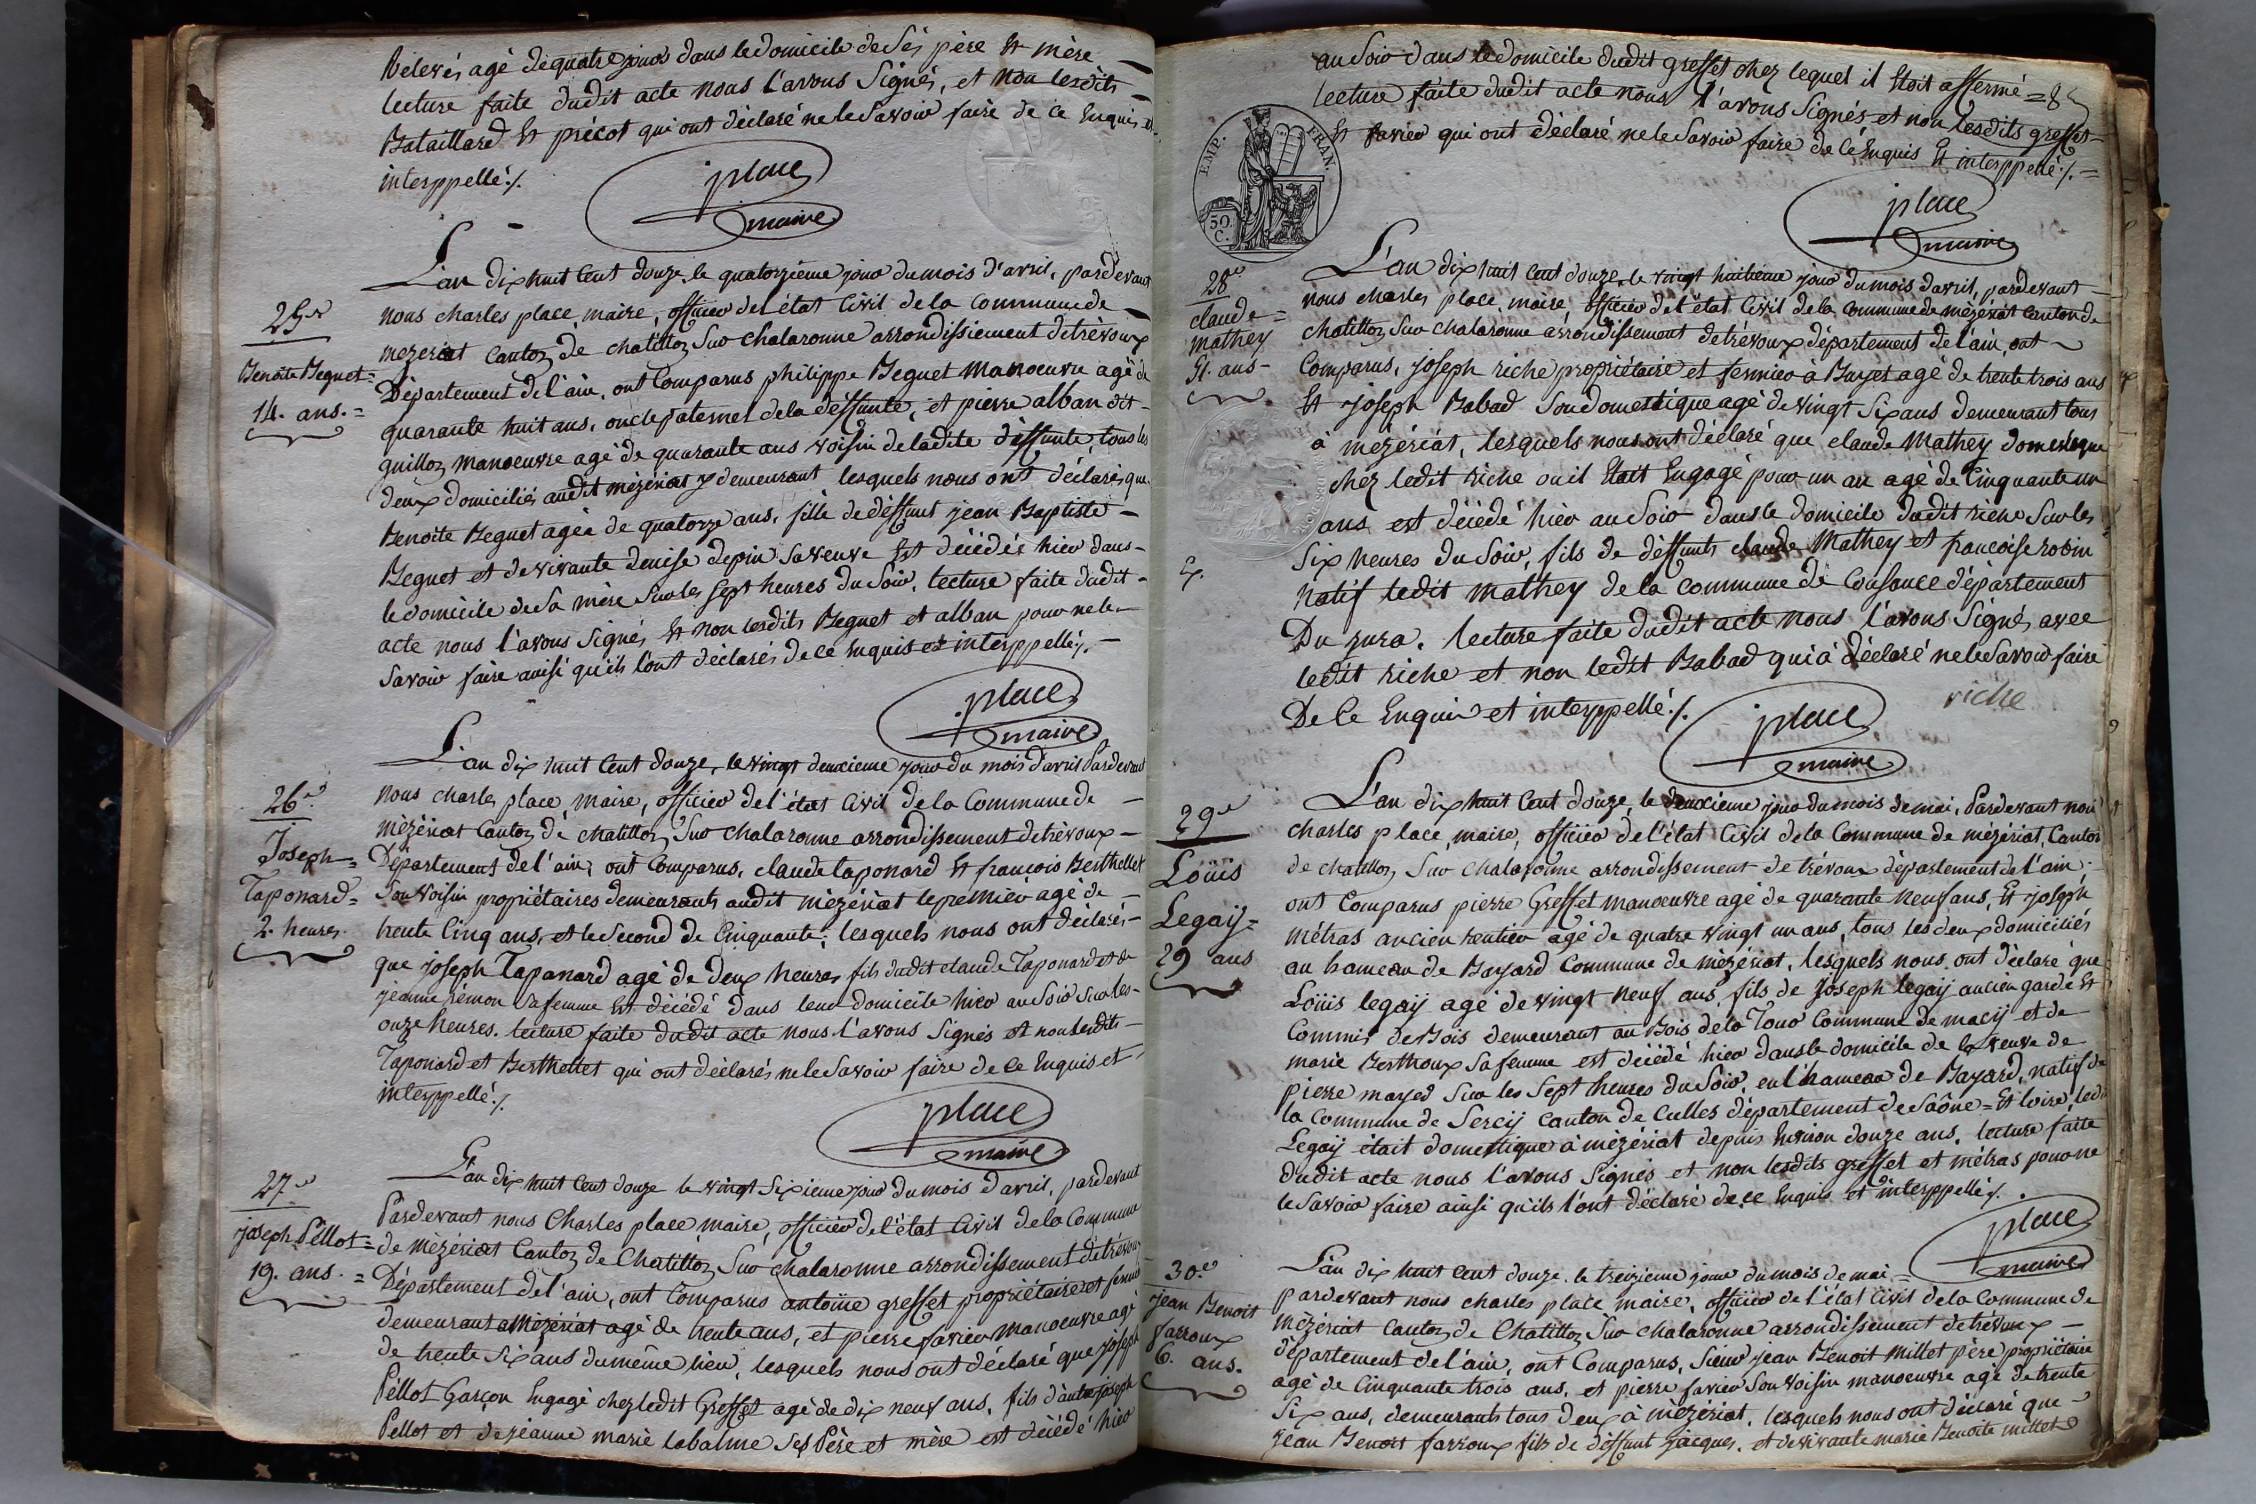 Relevés, agé de quatre jours dans le domicile de Ses père Et mère
lecture faite dudit acte nous l'avons Signés, et non lesdits
Bataillard Et précot qui ont déclaré ne le Savoir faire de ce Enquis et
interppellé ./.
place
maire
25e
Benoite Beguet =
14. ans. =
L'an dix huit Cent douze le quatorzième jour du mois d'avril, pardevant
nous charles place, maire, officier de l'état Civil de la Commune de
mezeriat Canton de chatillon Sur Chalaronne arrondissiement de trévoux
Département de l'ain, ont Comparus philippe Beguet Manoeuvre agé de
quarante huit ans, oncle paternel de la deffunte, et pierre alban dit
guillon manoeuvre agé de quarante ans voisin de ladite deffunte, tous les
deux domiciliés audit mézériat y demeurant lesquels nous ont déclarés que
Benoite Beguet agée de quatorze ans, fille de deffunt jean Baptiste
Beguet et de vivante denise depin Sa veuve Est décédée hier dans
le domicile de Sa mère Sur les Sept heures du Soir, lecture faite dudit
acte nous l'avons Signés Et non lesdits Beguet et alban pour ne le
Savoir faire ainsi qu'ils l'ont déclarés de ce enquis et interppellé ./.
place
maire
26e
Joseph =
Taponard =
2. heures.
L'an dix huit Cent douze, le vingt deuxieme jour du mois d'avril Pardevant
nous charles place, maire, officier de l'état Civil de la Commune de
mézériat Canton de chatillon Sur Chalaronne arrondissement de trévoux
Département de l'ain, ont Comparus, claude taponard Et francois Berthellet
Son Voisin propriétaires demeurants audit mézériat le premier agé de
trente Cinq ans, et le Second de Cinquante, lesquels nous ont déclarés
que joseph Taponard agé de deux heures fils dudit claude Taponard et de
jeanne rémon Sa femme Est décédé dans leur domicile hier au Soir Sur les
onze heures. lecture faite dudit acte nous l'avons Signés et non lesdits
Taponard et Berthellet qui ont déclarés ne le Savoir faire de ce Enquis et
interppellé ./.
place
maire
27e
joseph Péllot =
19. ans. =
L'an dix huit Cent douze le vingt Sixieme jour du mois d'avril, pardevant
Pardevant nous Charles place maire, officier de l'état Civil de la Commune
de mézériat Canton de Chatillon Sur chalaronne arrondissement de trévoux
Département de l'ain, ont Comparus antoine greffet propriétaire et fermier
demeurant a Mézériat agé de trente ans, et pierre favier manoeuvre agé
de trente Six ans du même lieu, lesquels nous ont déclaré que joseph
Péllot Garçon Engagé chez ledit Greffet agé de dix neuf ans, fils d'autre joseph
Pellot et de jeanne marie labalme Ses Père et mère est décédé hier
au Soir dans le domicile dudit greffet chez lequel il Etoit affermé =
lecture faite dudit acte nous l'avons Signés et non lesdits greffet
Et favier qui ont déclaré ne le Savoir faire de ce Enquis Et interppellé ./. =
EMP. FRAN.
50 C.
place
maire
28e
claude =
mathey
51. ans -
L'an dix huit Cent douze, le vingt huitieme jour du mois d'avril, pardevant
nous charles place, maire, officier de l'état Civil de la Commune de mézériat Canton de
chatillon Sur chalaronne arrondissement de trévoux département de l'ain, ont
Comparus, joseph riche propriétaire et fermier à Buyet agé de trente trois ans
Et joseph Babad Son domestique agé de vingt Six ans demeurant tous
à mézériat, lesquels nous ont déclaré que claude Mathey domestique
chez ledit riche ou il Etait Engagé pour un an agé de Cinquante un
ans est décédé hier au Soir dans le domicile dudit riche Sur les
Six heures du Soir, fils de deffunts claude Mathey et francoise robin
natif ledit mathey de la commune de Cousance département
Du jura. lecture faite dudit acte nous l'avons Signés avec
ledit riche et non ledit Babad qui à déclaré ne le Savoir faire
De Ce Enquis et interppellé ./.
riche
place
maire
29e
Loüis
Legaij =
29 ans
L'an dix huit Cent douze, le deuxieme jour du mois de mai, Pardevant nous
charles place, maire, officier de l'état Civil de la Commune de mézériat, Canton
de chatillon Sur Chalaronne arrondissement de trévoux département de l'ain
ont Comparus pierre Greffet manoeuvre agé de quarante neuf ans, Et joseph
métras ancien rentier agé de quatre vingt un ans, tous les deux domiciliés
au hameau de Bayard Commune de mézériat, lesquels nous ont déclaré que
Loüis legaij agé de vingt neuf ans, fils de Joseph legaij ancien garde Et
Commis de Bois demeurant au Bois de la Tour Commune de macij et de
marie Berthoux Sa femme est décédé hier dans le domicile de la veuve de
pierre mayed Sur les Sept heures du Soir, en l'hameau de Bayard, natif de
la Commune de Sercij Canton de Culles département de Saône = Et loire, ledit
Legaij était domestique à mézériat depuis Environ douze ans. lecture faite
dudit acte nous l'avons Signés et non lesdits greffet et métras pour ne
le Savoir faire ainsi qu'ils l'ont déclaré de ce Enquis et interppellé ./.
place
maire
30e
jean Benoit
farroux
6. ans.
L'an dix huit Cent douze, le treizieme jour du mois de mai =
pardevant nous charles place maire, officier de l'état Civil de la Commune de
mézériat Canton de Chatillon Sur chalaronne arrondissement de trévoux
département de l'ain, ont Comparus, Sieur jean Benoit Millet père propriétaire
agé de Cinquante trois ans, et pierre favier Son Voisin manoeuvre agé de trente
Six ans, demeurants tous deux à mézériat, lesquels nous ont déclaré que
jean Benoit farroux fils de deffunt jacques, et de vivante marie Benoite millet